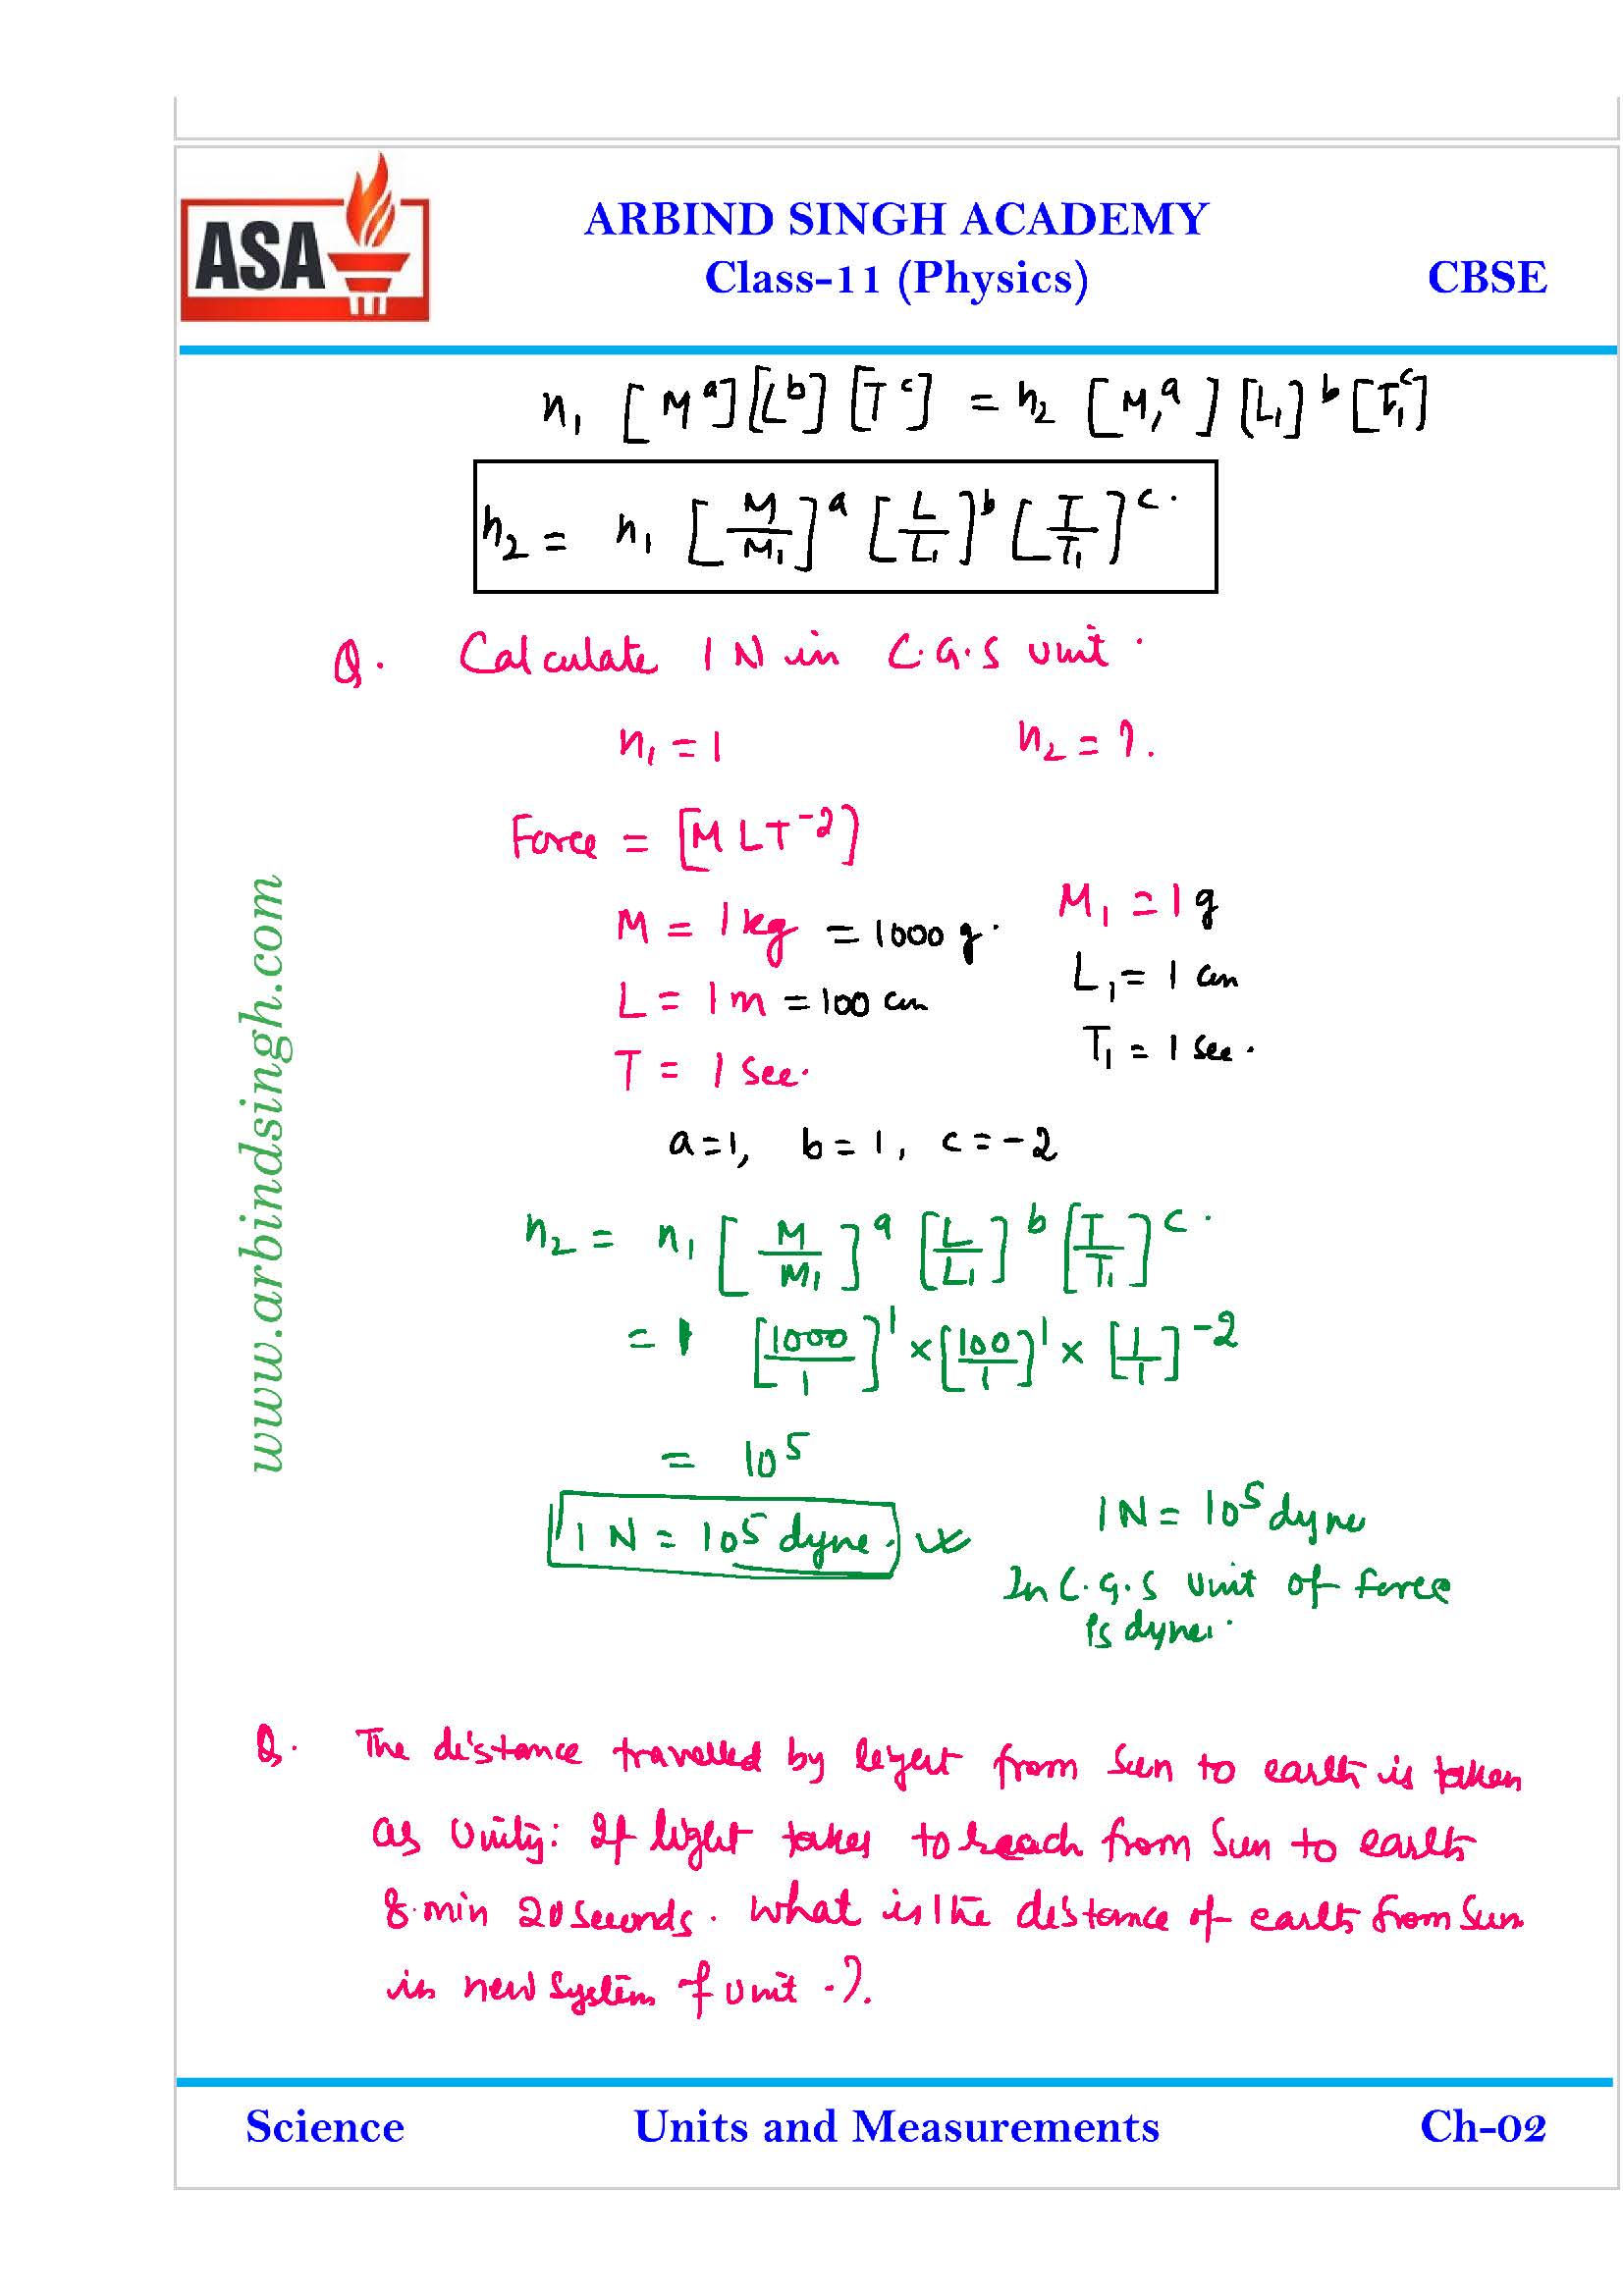 ASA
ARBIND SINGH ACADEMY
Class-11 (Physics)
CBSE
n₁ [Mᵃ][Lᵇ][Tᶜ] = n₂ [M₁ᵃ][L₁]ᵇ[T₁ᶜ]
n₂ = n₁ [M/M₁]ᵃ [L/L₁]ᵇ [T/T₁]ᶜ.
Q. Calculate 1 N in C.G.S unit.
n₁ = 1 n₂ = ?.
Force = [MLT⁻²]
M = 1 kg = 1000 g. M₁ = 1 g
L = 1 m = 100 cm L₁ = 1 cm
T = 1 sec. T₁ = 1 sec.
a=1, b=1, c=-2
n₂ = n₁ [M/M₁]ᵃ [L/L₁]ᵇ [T/T₁]ᶜ.
= 1 [1000/1]¹ × [100/1]¹ × [1/1]⁻²
= 10⁵
1 N = 10⁵ dyne. 1 N = 10⁵ dyne
In C.G.S unit of force
is dyne.
www.arbindsingh.com
Q. The distance travelled by light from Sun to earth is taken
as Unity: If light takes to reach from Sun to earth
8.min 20 seconds. What is the distance of earth from Sun
in new system of unit.?.
Science
Units and Measurements
Ch-02